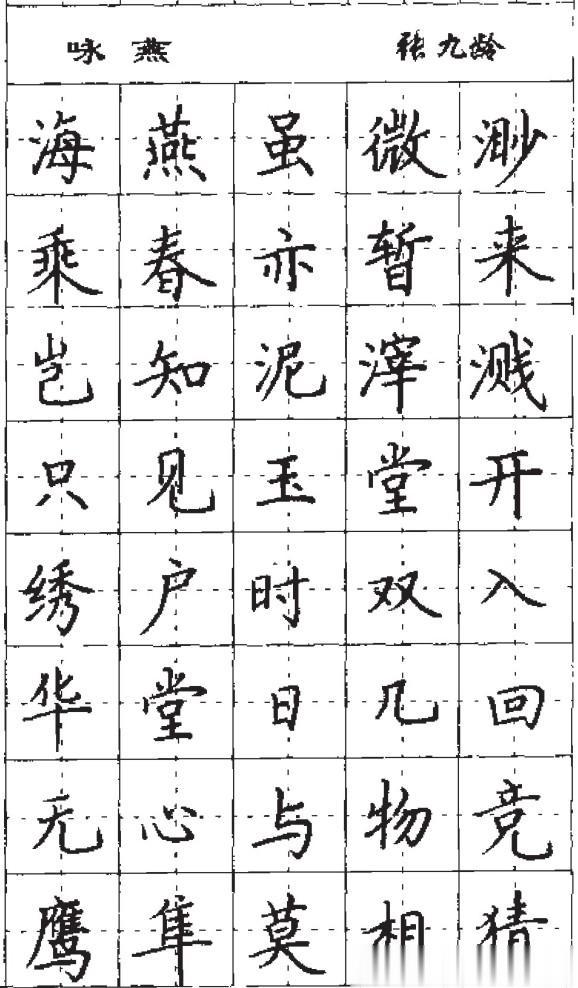 咏燕 张九龄
海燕虽微渺
乘春亦暂来
岂知泥滓溅
只见玉堂开
绣户时双入
华堂日几回
无心与物竞
鹰隼莫相猜